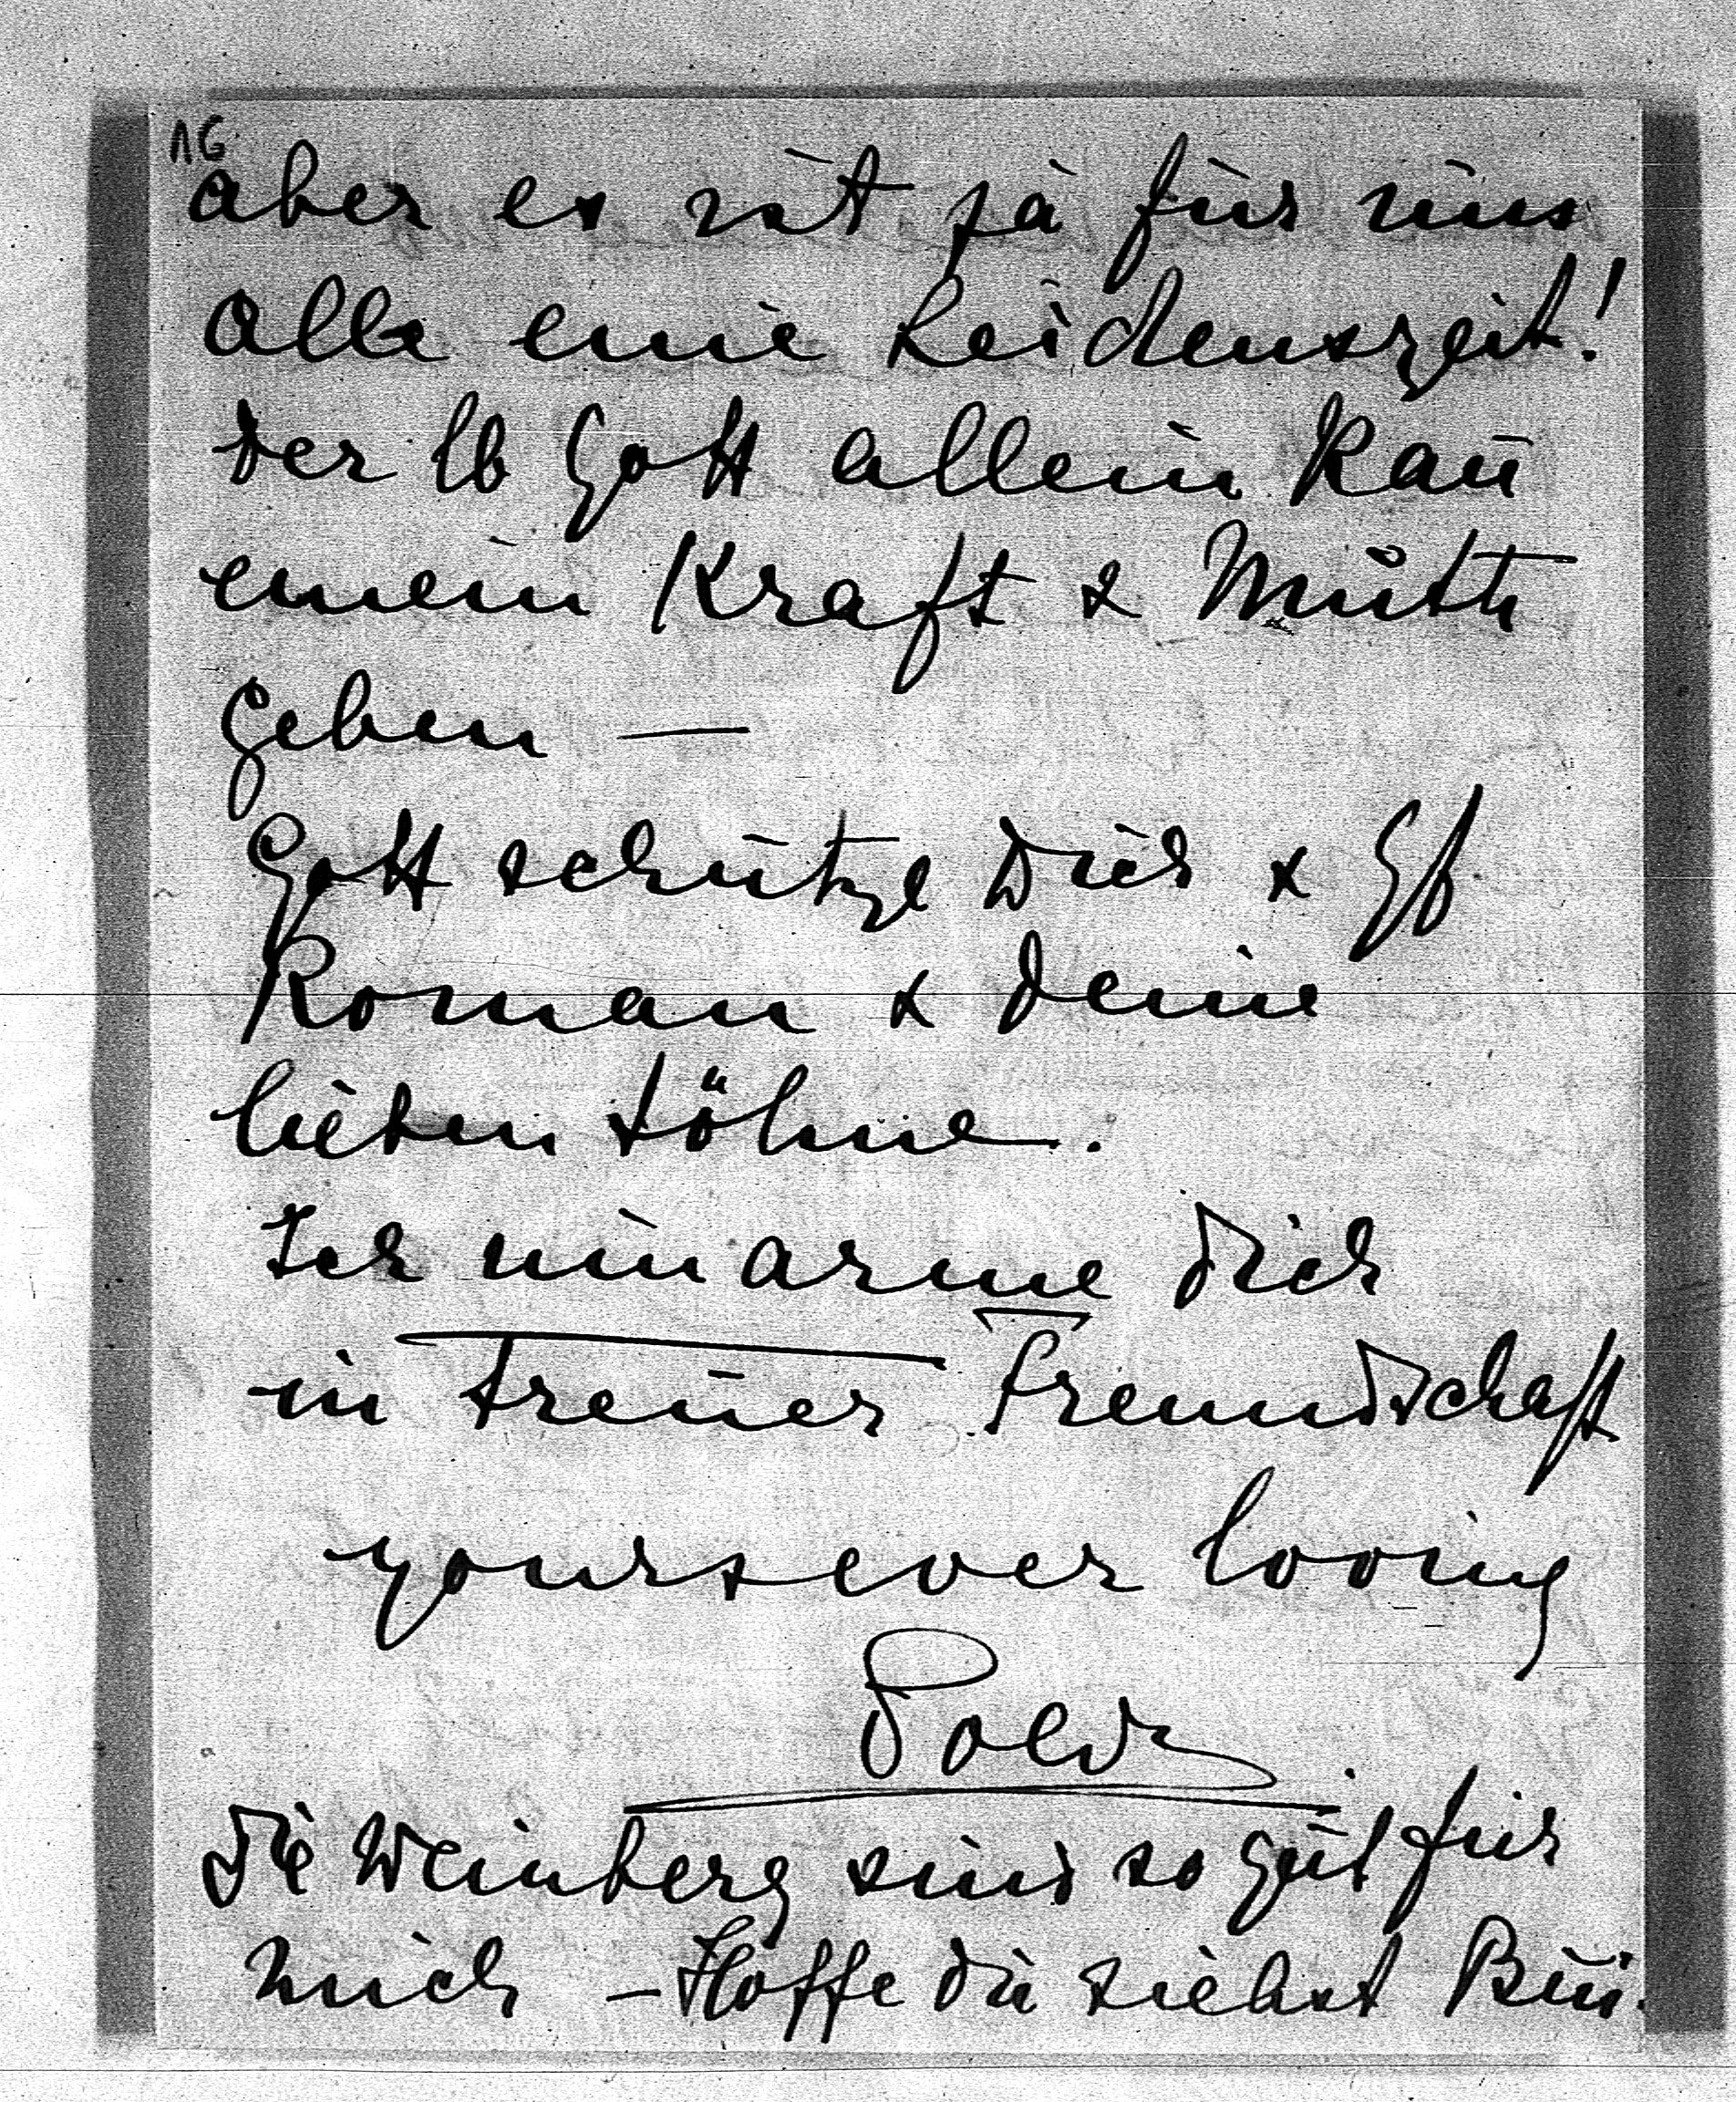 16
aber es ist ja für uns
alle eine Leidenszeit!
der lb Gott allein kan̄
einem Kraft & Muth
geben —
Gott schütze Dich &
Roman & deine
lieben Söhne.
Ich umarme Dich
in treuer Freundschaft
yours ever loving
Die Weinberg sind so gut für
mich – Hoffe du siehst